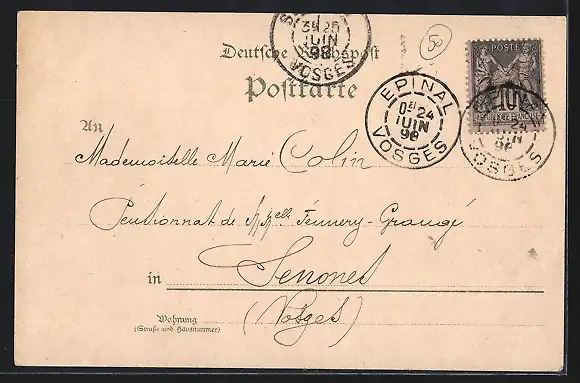 3E 25
JUIN
98
VOSGES
50
Deutsche Reichspost
Postkarte
POSTE
10
EPINAL
24
JUIN
98
VOSGES
JUIN
VOSGES
An
Mademoiselle Marie Colin
Pensionnat de Melle Fennery-Grangé
in Senones
(Vosges)
Wohnung
(Straße und Hausnummer)